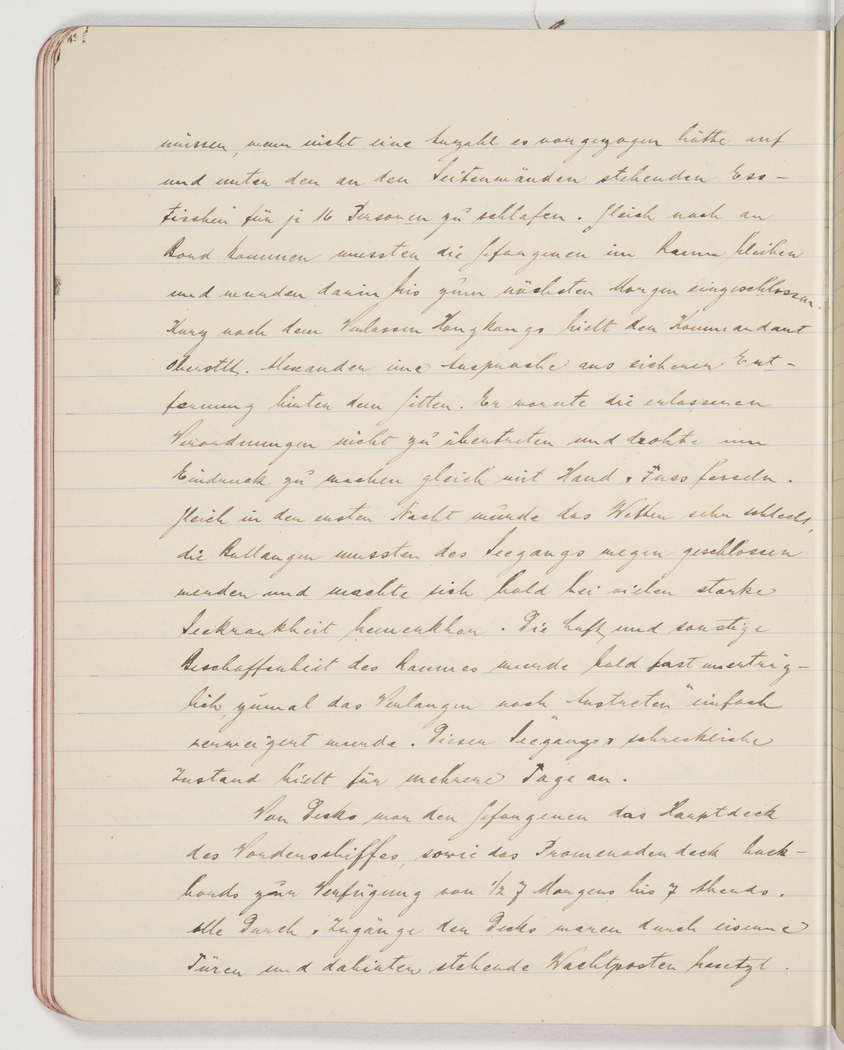 müssen, wenn nicht eine Anzahl es vorgezogen hätte auf
und unter den an den Seitenwänden stehenden Ess-
tischen für je 16 Personen zu schlafen. Gleich nach an
Bord kommen mussten die Gefangenen im Raum bleiben
und wurden darin bis zum nächsten Morgen eingeschlossen.
Kurz nach dem Verlassen Hongkongs hielt der Kommandant
Oberstlt. Alexander eine Ansprache aus sicherer Ent-
fernung hinter dem Gitter. Er warnte die erlassenen
Verordnungen nicht zu übertreten und drohte um
Eindruck zu machen gleich mit Hand & Fuss fesseln.
Gleich in der ersten Nacht wurde das Wetter sehr schlecht,
die Bullaugen mussten des Seegangs wegen geschlossen
werden und machte sich bald bei vielen starke
Seekrankheit bemerkbar. Die Luft und sonstige
Beschaffenheit des Raumes wurde bald fast unerträg-
lich, zumal das Verlangen nach Austreten" einfach
verweigert wurde. Dieser Seegang & schreckliche
Zustand hielt für mehrere Tage an.
Von Decks war den Gefangenen das Hauptdeck
des Vorderschiffes, sowie das Promenadendeck back-
bords zur Verfügung von 1/2 7 Morgens bis 7 Abends.
Alle Durch & Zugänge der Decks waren durch eiserne
Türen und dahinter stehende Wachtposten besetzt.